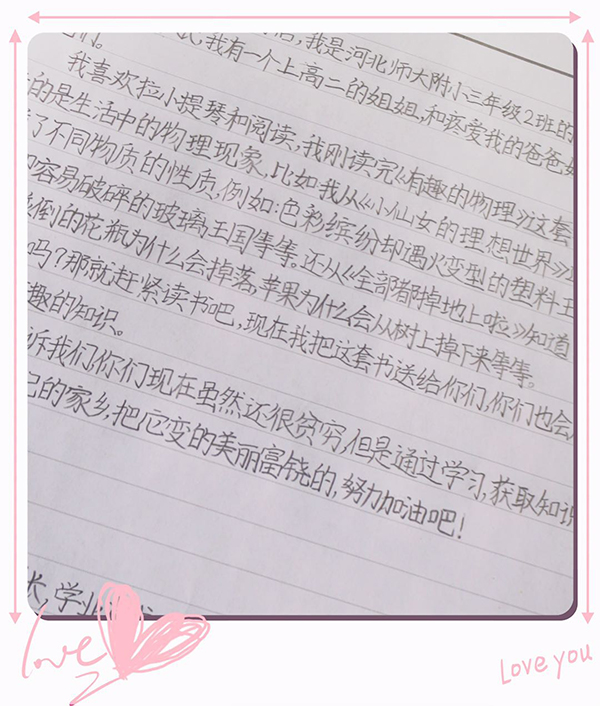 我是河北师大附小三年级2班的
们。 我有一个上高二的姐姐,和疼爱我的爸爸
我喜欢拉小提琴和阅读,我刚读完《有趣的物理》这套
的是生活中的物理现象,比如我从《小仙女的理想世界》
了不同物质的性质,例如:色彩缤纷却遇火变型的塑料王
容易破碎的玻璃王国等等。还从《全部都掉地上啦》知道
倒的花瓶为什么会掉落,苹果为什么会从树上掉下来等等。
吗?那就赶紧读书吧,现在我把这套书送给你们,你们也会
趣的知识。
诉我们,你们现在虽然还很贫穷,但是通过学习,获取知识
己的家乡,把它变的美丽富饶的,努力加油吧!
学
love
Love you